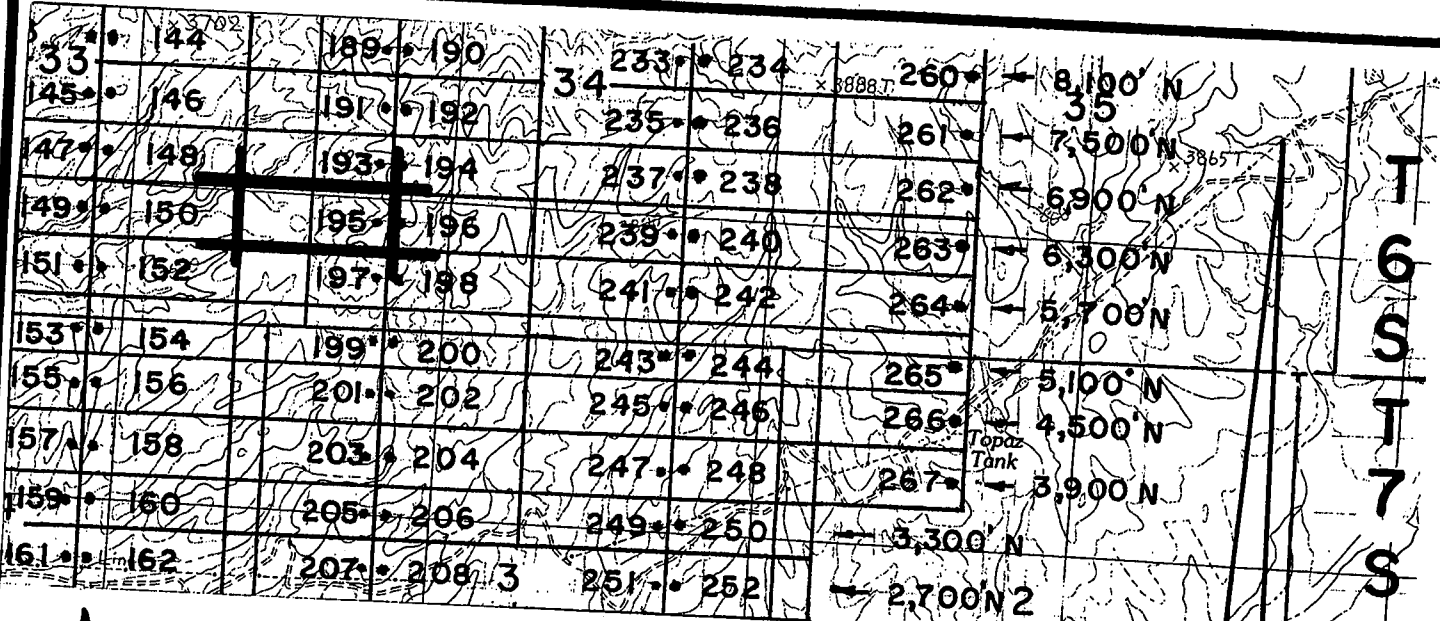 × 3702
144 189 190 233 234 260 8,100' N
33 34 × 3888T 35
145 146 191 192 235 236 261 7,500' N
147 148 193 194 237 238 262 6,900' N 3865T
149 150 195 196 239 240 263 6,300' N
151 152 197 198 241 242 264 5,700' N
153 154 199 200 243 244 265 5,100' N
155 156 201 202 245 246 266 4,500' N
Topaz
Tank
157 158 203 204 247 248 267 3,900' N
159 160 205 206 249 250 3,300' N
161 162 207 208 3 251 252 2,700' N 2
T
6
S
T
7
S